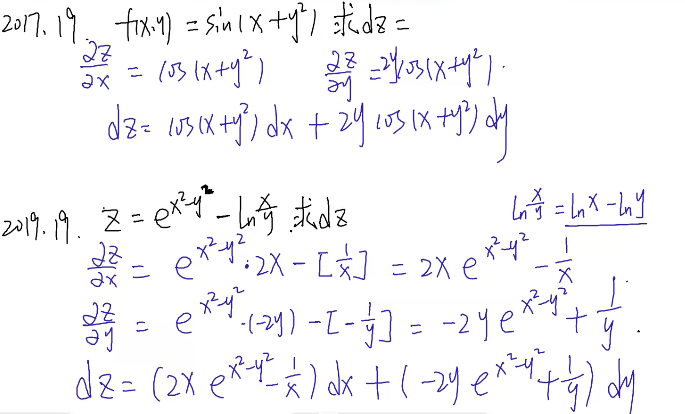 2017.19. f(x,y) = sin(x+y²) 求dz =
∂z/∂x = cos(x+y²) ∂z/∂y = 2ycos(x+y²).
dz = cos(x+y²)dx + 2y cos(x+y²)dy
2019.19. z = e^(x²-y²) - ln x/y .求dz ln x/y = ln x - ln y
∂z/∂x = e^(x²-y²)·2x - [1/x] = 2x e^(x²-y²) - 1/x
∂z/∂y = e^(x²-y²)·(-2y) - [-1/y] = -2y e^(x²-y²) + 1/y.
dz = (2x e^(x²-y²) - 1/x)dx + (-2y e^(x²-y²) + 1/y) dy